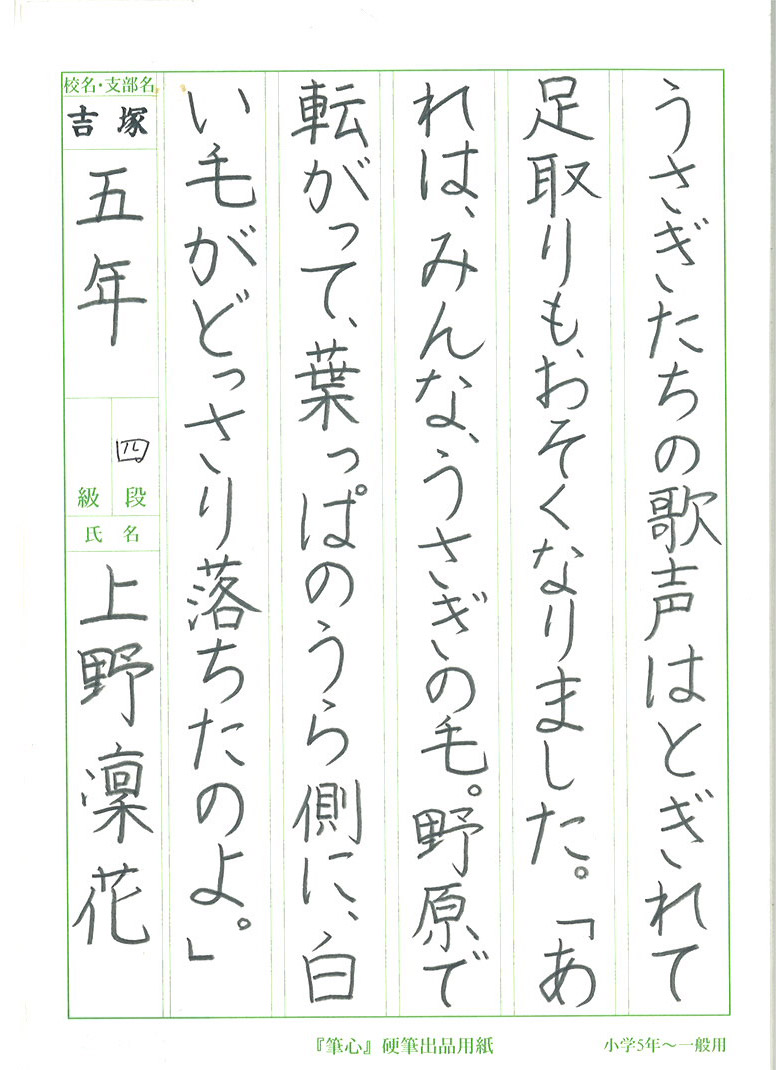 うさぎたちの歌声はとぎれて
足取りも、おそくなりました。「あ
れは、みんな、うさぎの毛。野原で
転がって、葉っぱのうら側に、白
い毛がどっさり落ちたのよ。」
校名・支部名
吉塚
五年
四段
級
氏名
上野凛花
『筆心』硬筆出品用紙
小学5年〜一般用